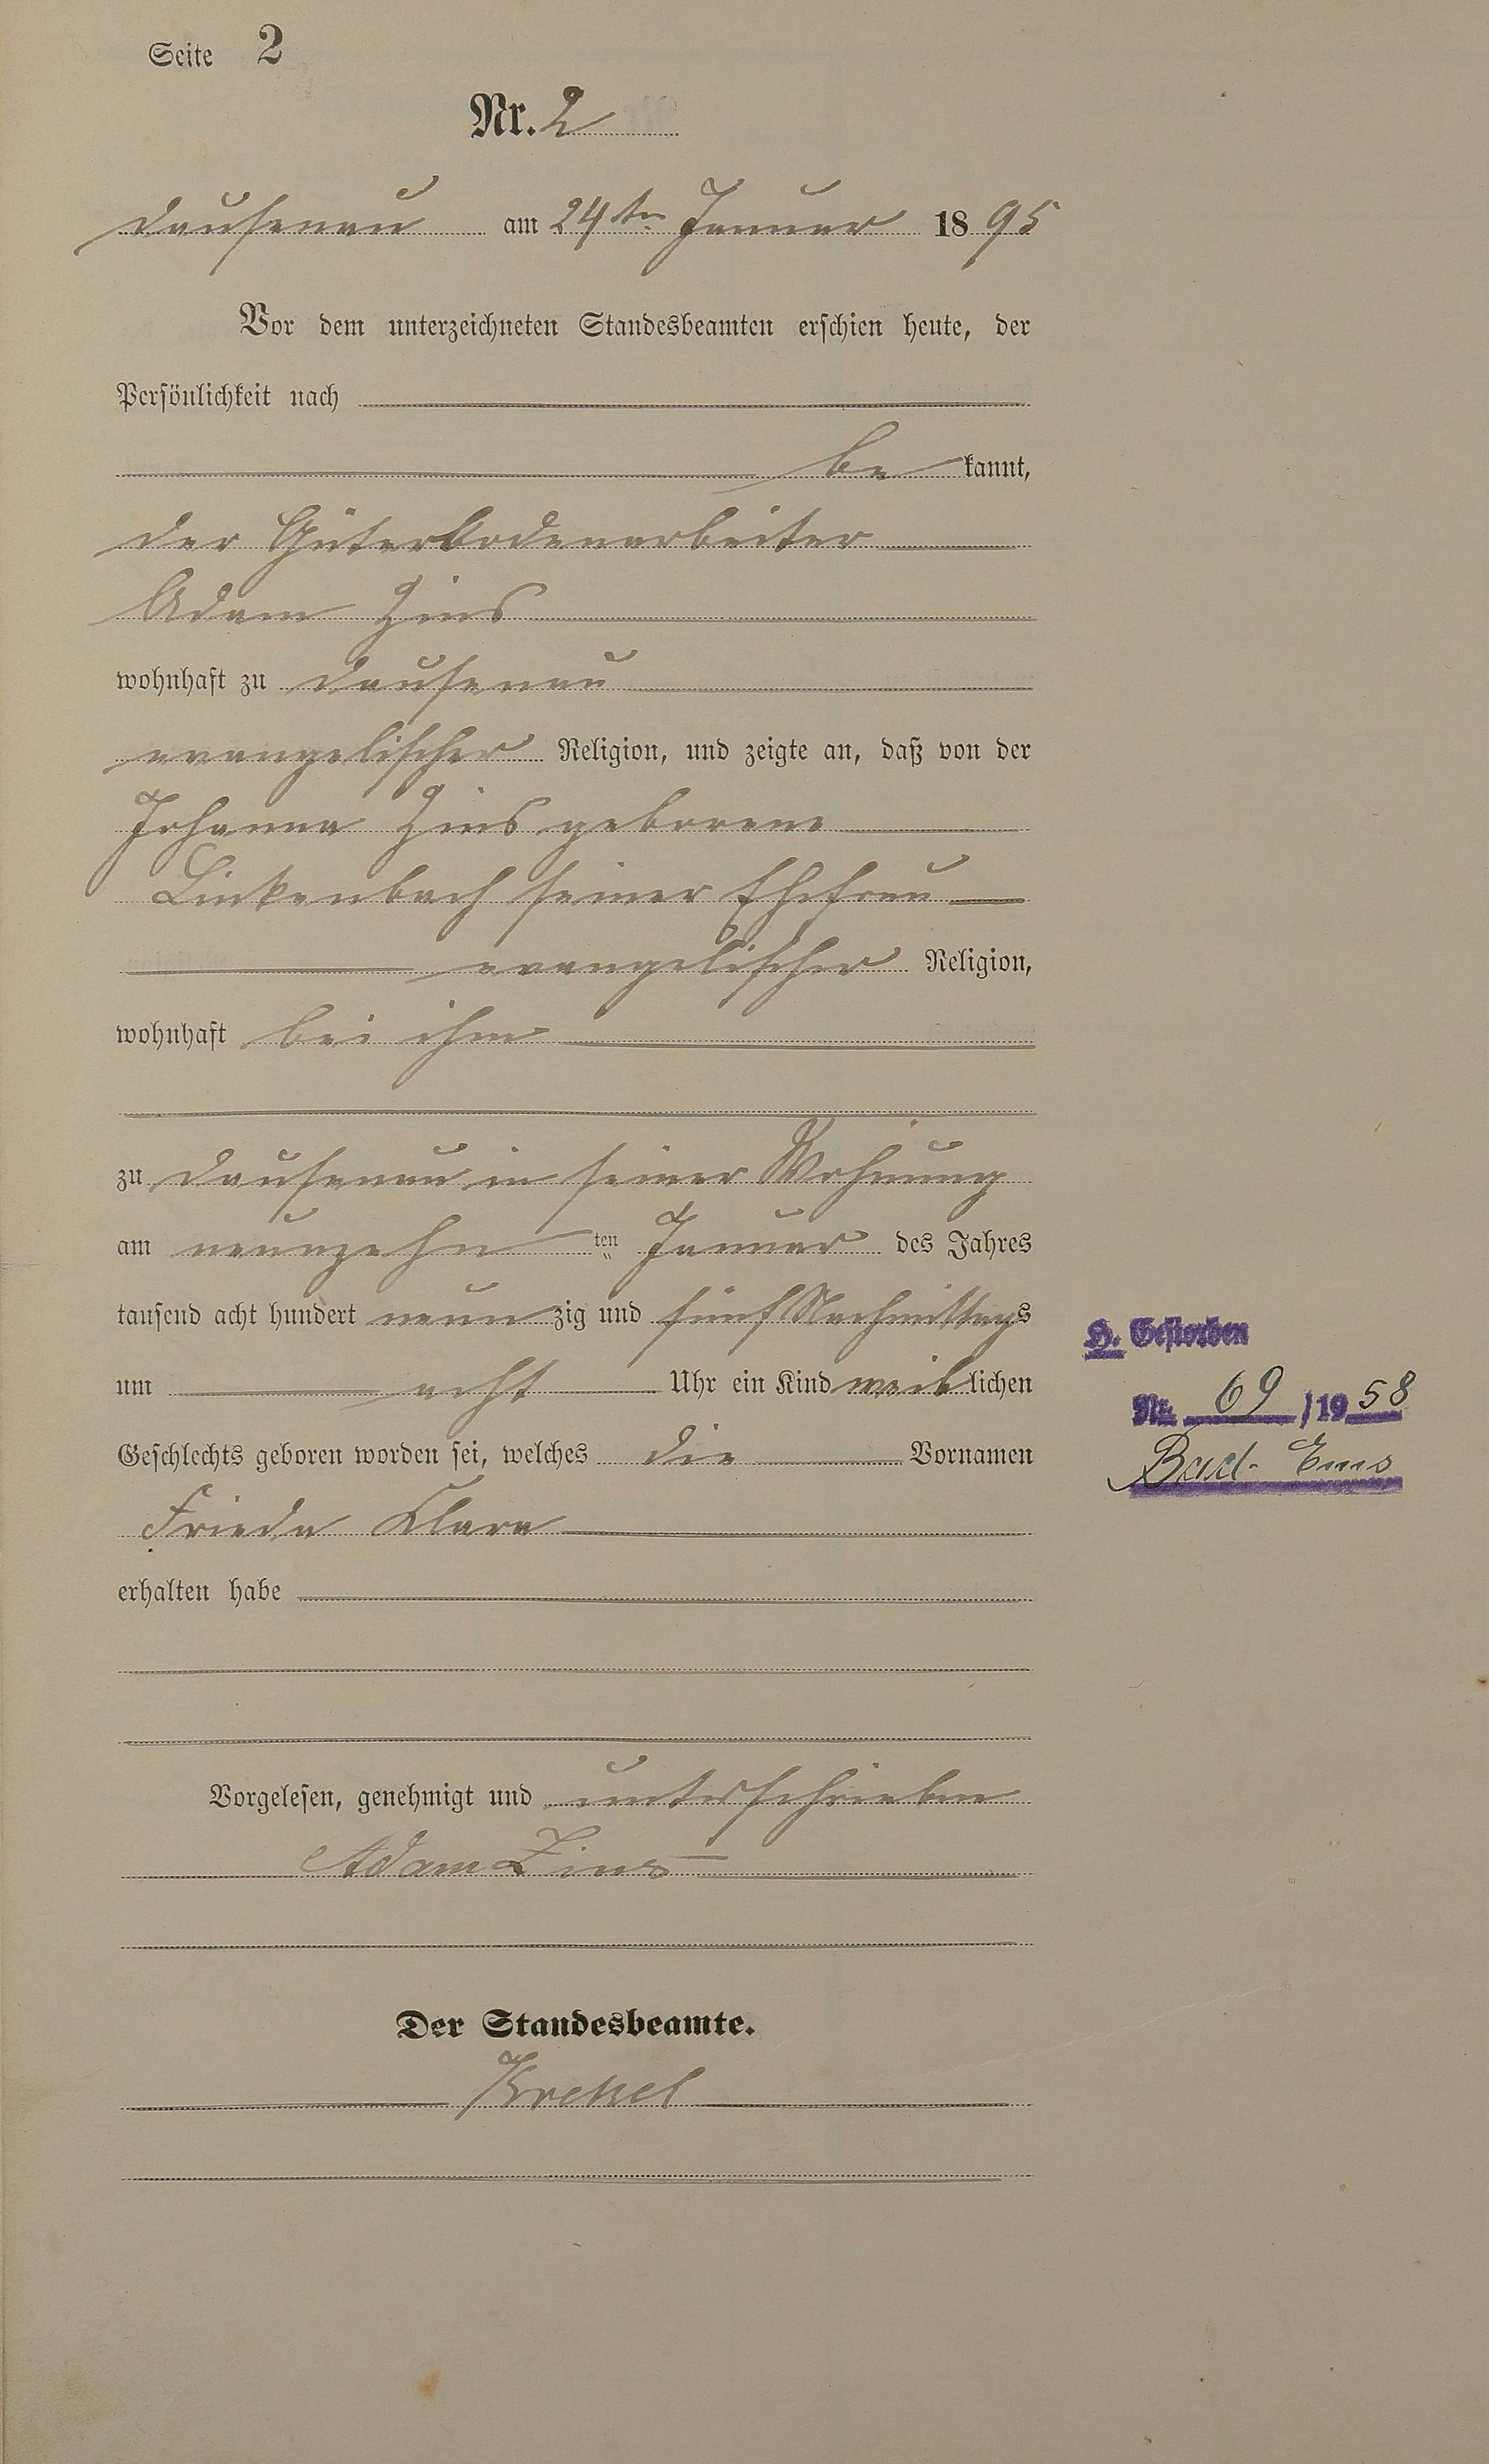 Seite 2
Nr. 2
Dausenau am 24ten Januar 1895
Vor dem unterzeichneten Standesbeamten erschien heute, der
Persönlichkeit nach
be kannt,
der Güterbodenarbeiter
Adam Zins
wohnhaft zu Dausenau
evangelischer Religion, und zeigte an, daß von der
Johanna Zins geborene
Linkenbach seiner Ehefrau
evangelischer Religion,
wohnhaft bei ihm
zu Dausenau in seiner Wohnung
am neunzehn ten Januar des Jahres
tausend acht hundert neun zig und fünf Nachmittags
um acht Uhr ein Kind weiblichen
Geschlechts geboren worden sei, welches die Vornamen
Frieda Klara
erhalten habe
Vorgelesen, genehmigt und unterschrieben
Adam Zins
Der Standesbeamte.
Krekel
H. Gestorben
Nr. 69 / 1958
Bad-Ems